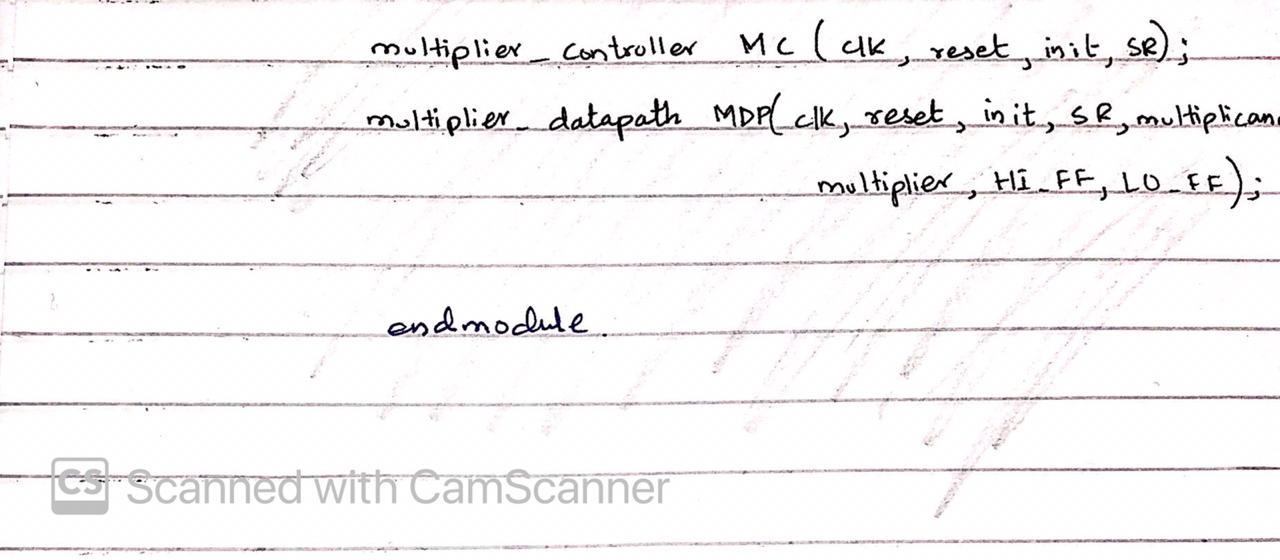 multiplier_controller MC (clk, reset, init, SR);
multiplier_datapath MDP(clk, reset, init, SR, multiplican
multiplier, HI_FF, LO_FF);
endmodule.
CS Scanned with CamScanner